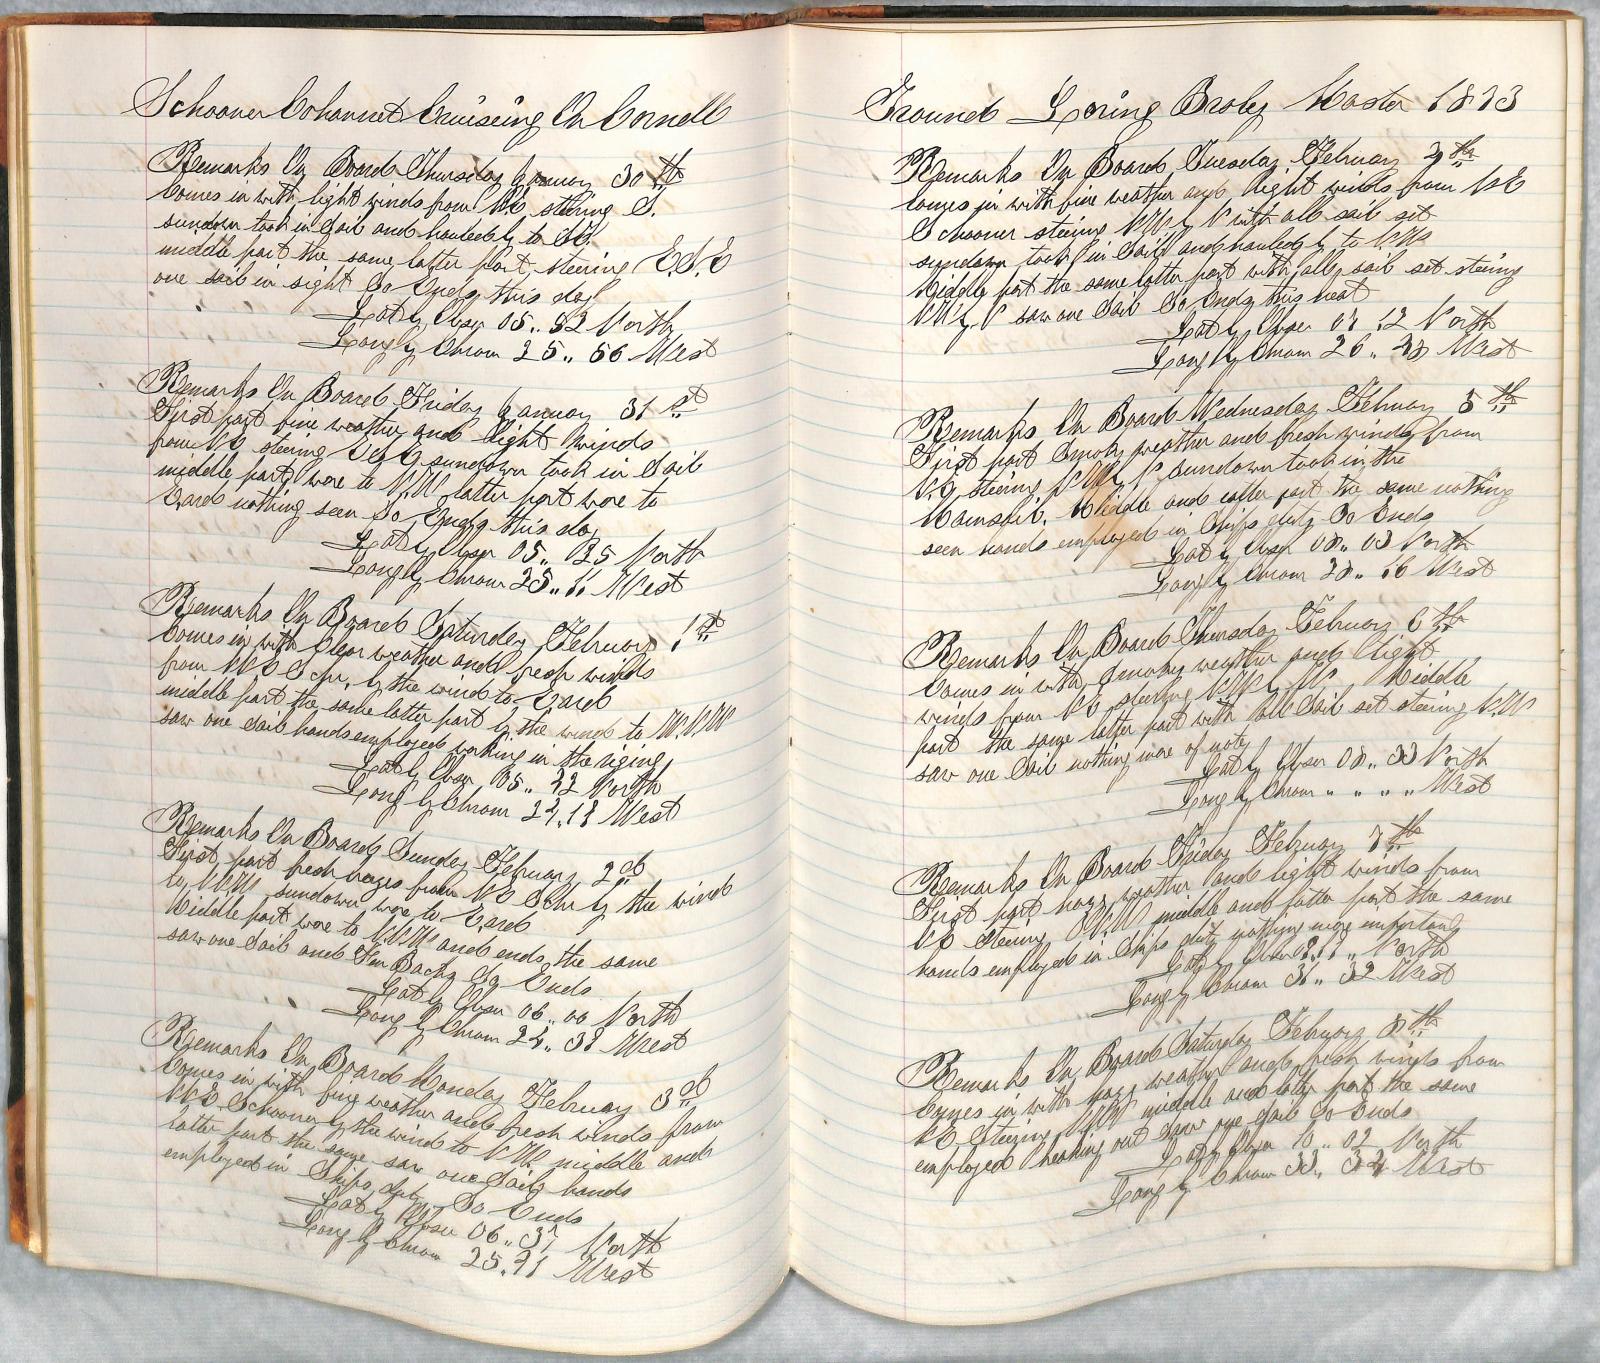 Schooner Cohannet Cruiseing On Cornell
Remarks On Board Thursday January 30th
Comes in with light winds from NE steering S.
sundown took in Sail and hauled by to SE
middle part the same latter part steering E.S.E
one sail in sight So Ends this day
Lat by Obser 05.. 52 North
Long by Chrom 25.. 56 West
Remarks On Board Friday January 31st
First part fine weather and light winds
from NE steering SE sundown took in Sail
middle part wore to N.W latter part wore to
Eard nothing seen So Ends this day
Lat by Obser 05.. 35 North
Long by Chrom 25.. 11 West
Remarks On Board Saturday February 1st
Comes in with Clear weather and fresh winds
from NNE Schr. by the wind to Eard
middle part the same latter part by the wind to N.NW
saw one Sail hands employed working in the riging
Lat by Obser 05.. 42 North
Long by Chrom 24.. 18 West
Remarks On Board Sunday February 2nd
First part fresh brezes from NE Schr by the wind
to N.NW sundown wore to Eard
Middle part wore to N.NW and ends the same
saw one Sail and Fin Backs So Ends
Lat by Obser 06.. 00 North
Long by Chrom 24.. 38 West
Remarks On Board Monday February 3rd
Comes in with fine weather and fresh winds from
NNE Schooner by the wind to NW middle and
latter part the same saw one Sail hands
employed in Ships duty So Ends
Lat by Obser 06.. 37 North
Long by Chrom 25.. 41 West
Ground Loring Braley Master 1873
Remarks On Board Tuesday February 4th
Comes in with fine weather and light winds from NE
Schooner steering NW by N with all sail set
sundown took in Sail and hauled by to NW
Middle part the same latter part with all sail set steering
NW by N saw one Sail So Ends this
Lat by Obser 07 12 North
Long by Chrom 26.. 43 West
Remarks On Board Wednesday February 5th
First part Smoky weather and fresh winds from
N.E steering NW by N sundown took in the
Mainsail. Middle and latter part the same nothing
seen hands employed in Ships duty So Ends
Lat by Obser 08.. 03 North
Long by Chrom 28.. 16 West
Remarks On Board Thursday February 6th
Comes in with Smoky weather and light
winds from NE steering N.W by W Middle
part the same latter part with all Sail set steering N.W
saw one Sail nothing more of note
Lat by Obser 08.. 33 North
Long by Chrom " " " " West
Remarks On Board Friday February 7th
First part hazy weather and light winds from
NE steering N.W middle and latter part the same
hands employed in Ships duty nothing more important
Lat by Obser North
Long by Chrom 31.. 32 West
Remarks On Board Saturday February 8th
Comes in with hazy weather and fresh winds from
NE Steering NW middle and latter part the same
employed saw one sail So Ends
Lat by Obser 10.. 02 North
Long by Chrom 33.. 34 West